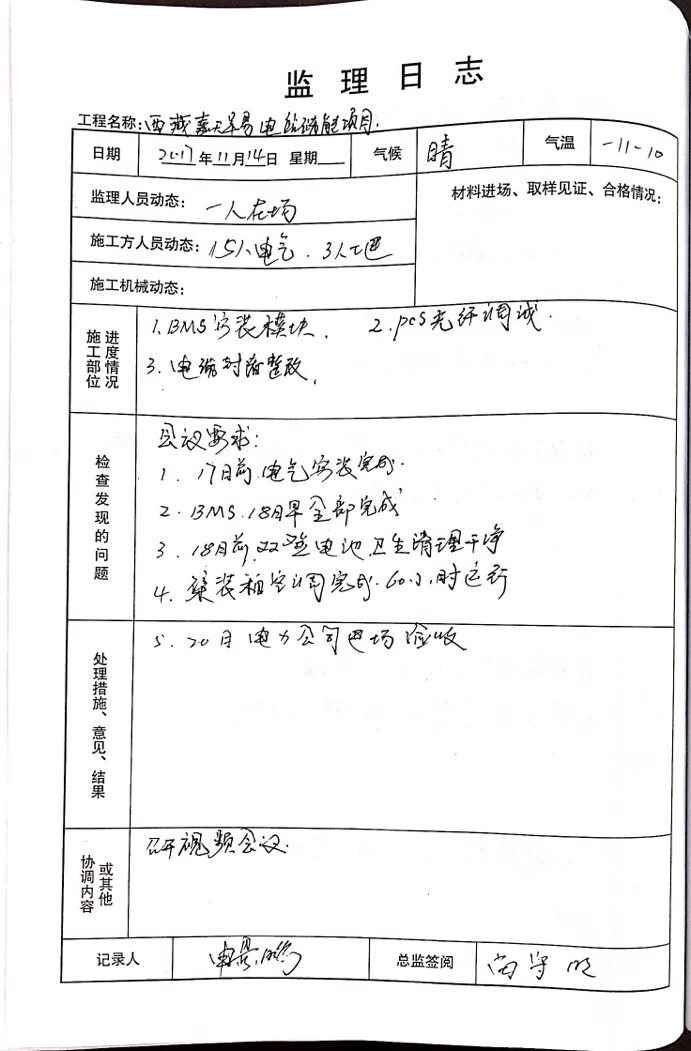 监理日志
工程名称:西藏嘉天羊易电站储能项目.
日期 2017年11月14日 星期 气候 晴 气温 -11-10
监理人员动态: 一人在场
材料进场、取样见证、合格情况:
施工方人员动态: 15人电气. 3人土建
施工机械动态:
施工部位 进度情况
1.BMS安装模块. 2.pcs光纤调试.
3.电缆封堵整改.
检查发现的问题
会议要求:
1. 17日前,电气安装完成.
2.BMS.18日早全部完成
3.18日前,双登电池,卫生清理干净
4.集装箱空调完成.60小时运行
处理措施、意见、结果
5.20日电力公司进场验收
协调内容 或其他
召开视频会议.
记录人 总监签阅